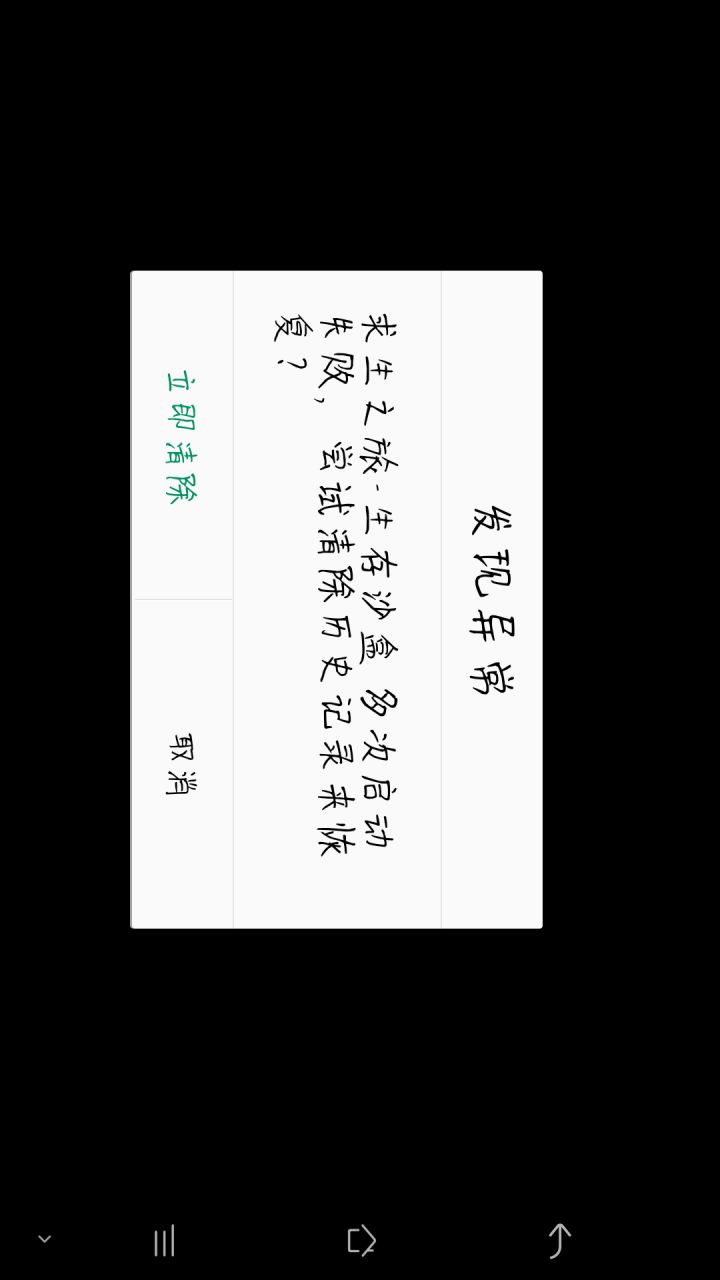 发现异常
求生之旅-生存沙盒 多次启动
失败，尝试清除历史记录来恢
复？
立即清除
取消